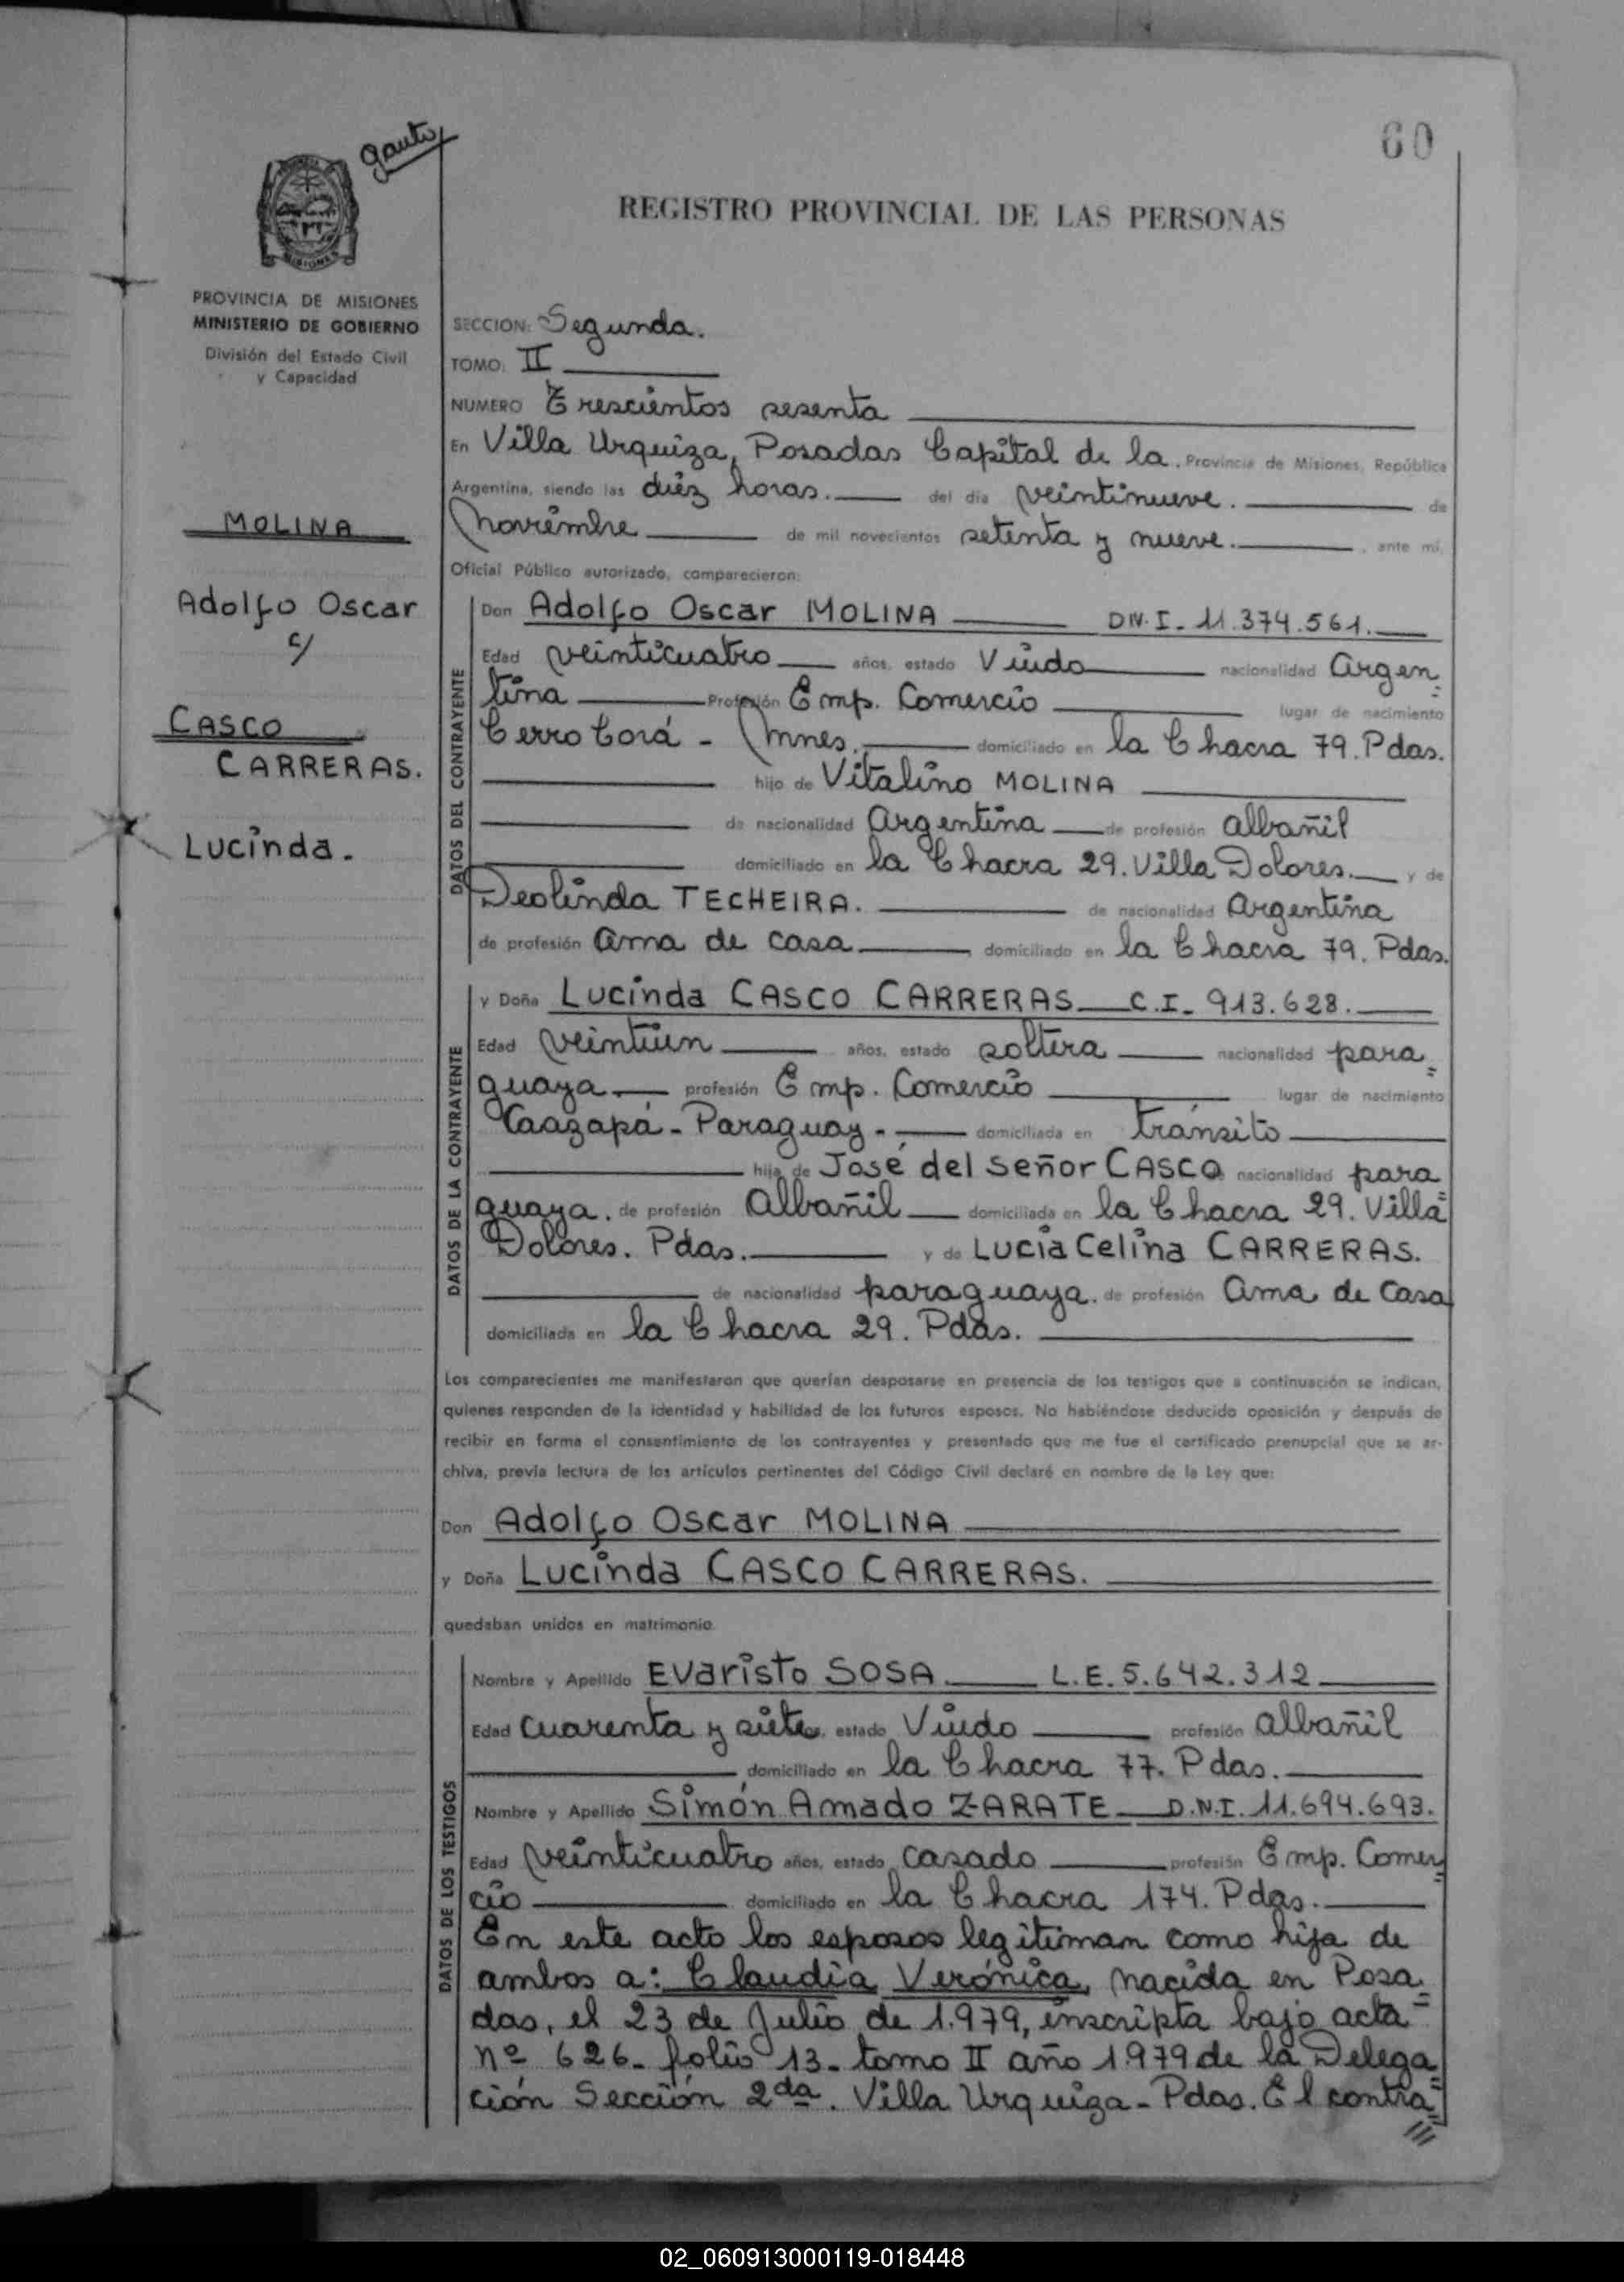 60
gauto
REGISTRO PROVINCIAL DE LAS PERSONAS
MISIONES
PROVINCIA DE MISIONES
MINISTERIO DE GOBIERNO
División del Estado Civil
y Capacidad
MOLINA
Adolfo Oscar
c/
CASCO
CARRERAS.
Lucinda.
SECCION: Segunda.
TOMO: II
NUMERO Trescientos sesenta
En Villa Urquiza, Posadas Capital de la. Provincia de Misiones, República
Argentina, siendo las diéz horas. del día veintinueve. de
Noviembre de mil novecientos setenta y nueve. , ante mí,
Oficial Público autorizado, comparecieron:
DATOS DEL CONTRAYENTE
Don Adolfo Oscar MOLINA DN.I- 11.374.561.
Edad veinticuatro años, estado Viudo nacionalidad argen=
tina Profesión Emp. Comercio lugar de nacimiento
Cerro Corá - Mnes. domiciliado en la Chacra 79. Pdas.
hijo de Vitalino MOLINA
de nacionalidad argentina de profesión albañil
domiciliado en la Chacra 29. Villa Dolores. y de
Deolinda TECHEIRA. de nacionalidad argentina
de profesión ama de casa domiciliado en la Chacra 79. Pdas.
DATOS DE LA CONTRAYENTE
y Doña Lucinda CASCO CARRERAS C.I- 913.628.
Edad veintiún años, estado soltera nacionalidad para=
guaya profesión Emp. Comercio lugar de nacimiento
Caazapá - Paraguay - domiciliada en tránsito
hija de José del Señor CASCO nacionalidad para=
guaya. de profesión albañil domiciliada en la Chacra 29. Villa
Dolores. Pdas. y de Lucía Celina CARRERAS.
de nacionalidad paraguaya. de profesión ama de casa
domiciliada en la Chacra 29. Pdas.
Los comparecientes me manifestaron que querían desposarse en presencia de los testigos que a continuación se indican,
quienes responden de la identidad y habilidad de los futuros esposos. No habiéndose deducido oposición y después de
recibir en forma el consentimiento de los contrayentes y presentado que me fue el certificado prenupcial que se ar-
chiva, previa lectura de los artículos pertinentes del Código Civil declaré en nombre de la Ley que:
Don Adolfo Oscar MOLINA
y Doña Lucinda CASCO CARRERAS.
quedaban unidos en matrimonio.
DATOS DE LOS TESTIGOS
Nombre y Apellido Evaristo SOSA L.E. 5.642.312
Edad cuarenta y siete estado Viudo profesión albañil
domiciliado en la Chacra 77. Pdas.
Nombre y Apellido Simón Amado ZARATE D.N.I. 11.694.693.
Edad veinticuatro años, estado casado profesión Emp. Comer=
cio domiciliado en la Chacra 174. Pdas.
En este acto los esposos legitiman como hija de
ambos a: Claudia Verónica, nacida en Posa=
das, el 23 de Julio de 1.979, inscripta bajo acta
nº 626- folio 13- tomo II año 1979 de la Delega=
ción Sección 2da. Villa Urquiza - Pdas. El contra=
///
02_060913000119-018448